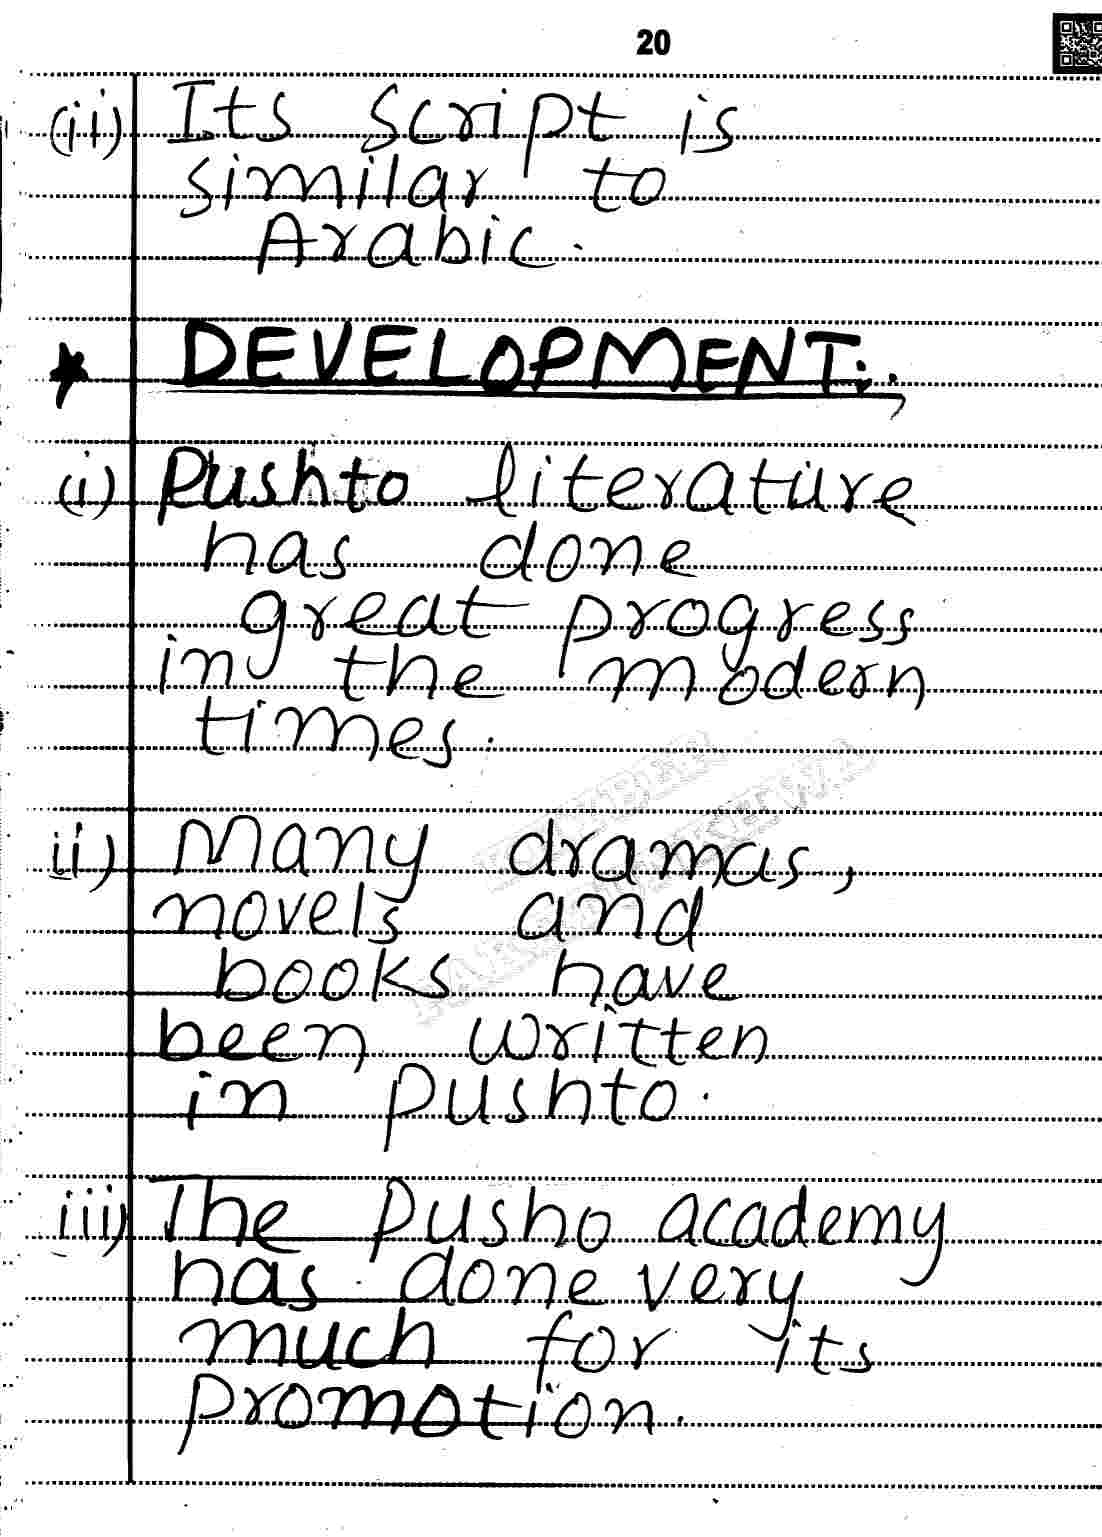 20
(ii) Its script is
similar to
Arabic.
★ DEVELOPMENT:.
(i) Pushto literature
has done
great progress
in the modern
times.
ii) Many dramas,
novels and
books have
been written
in Pushto.
iii) The Pusho academy
has done very
much for its
promotion.